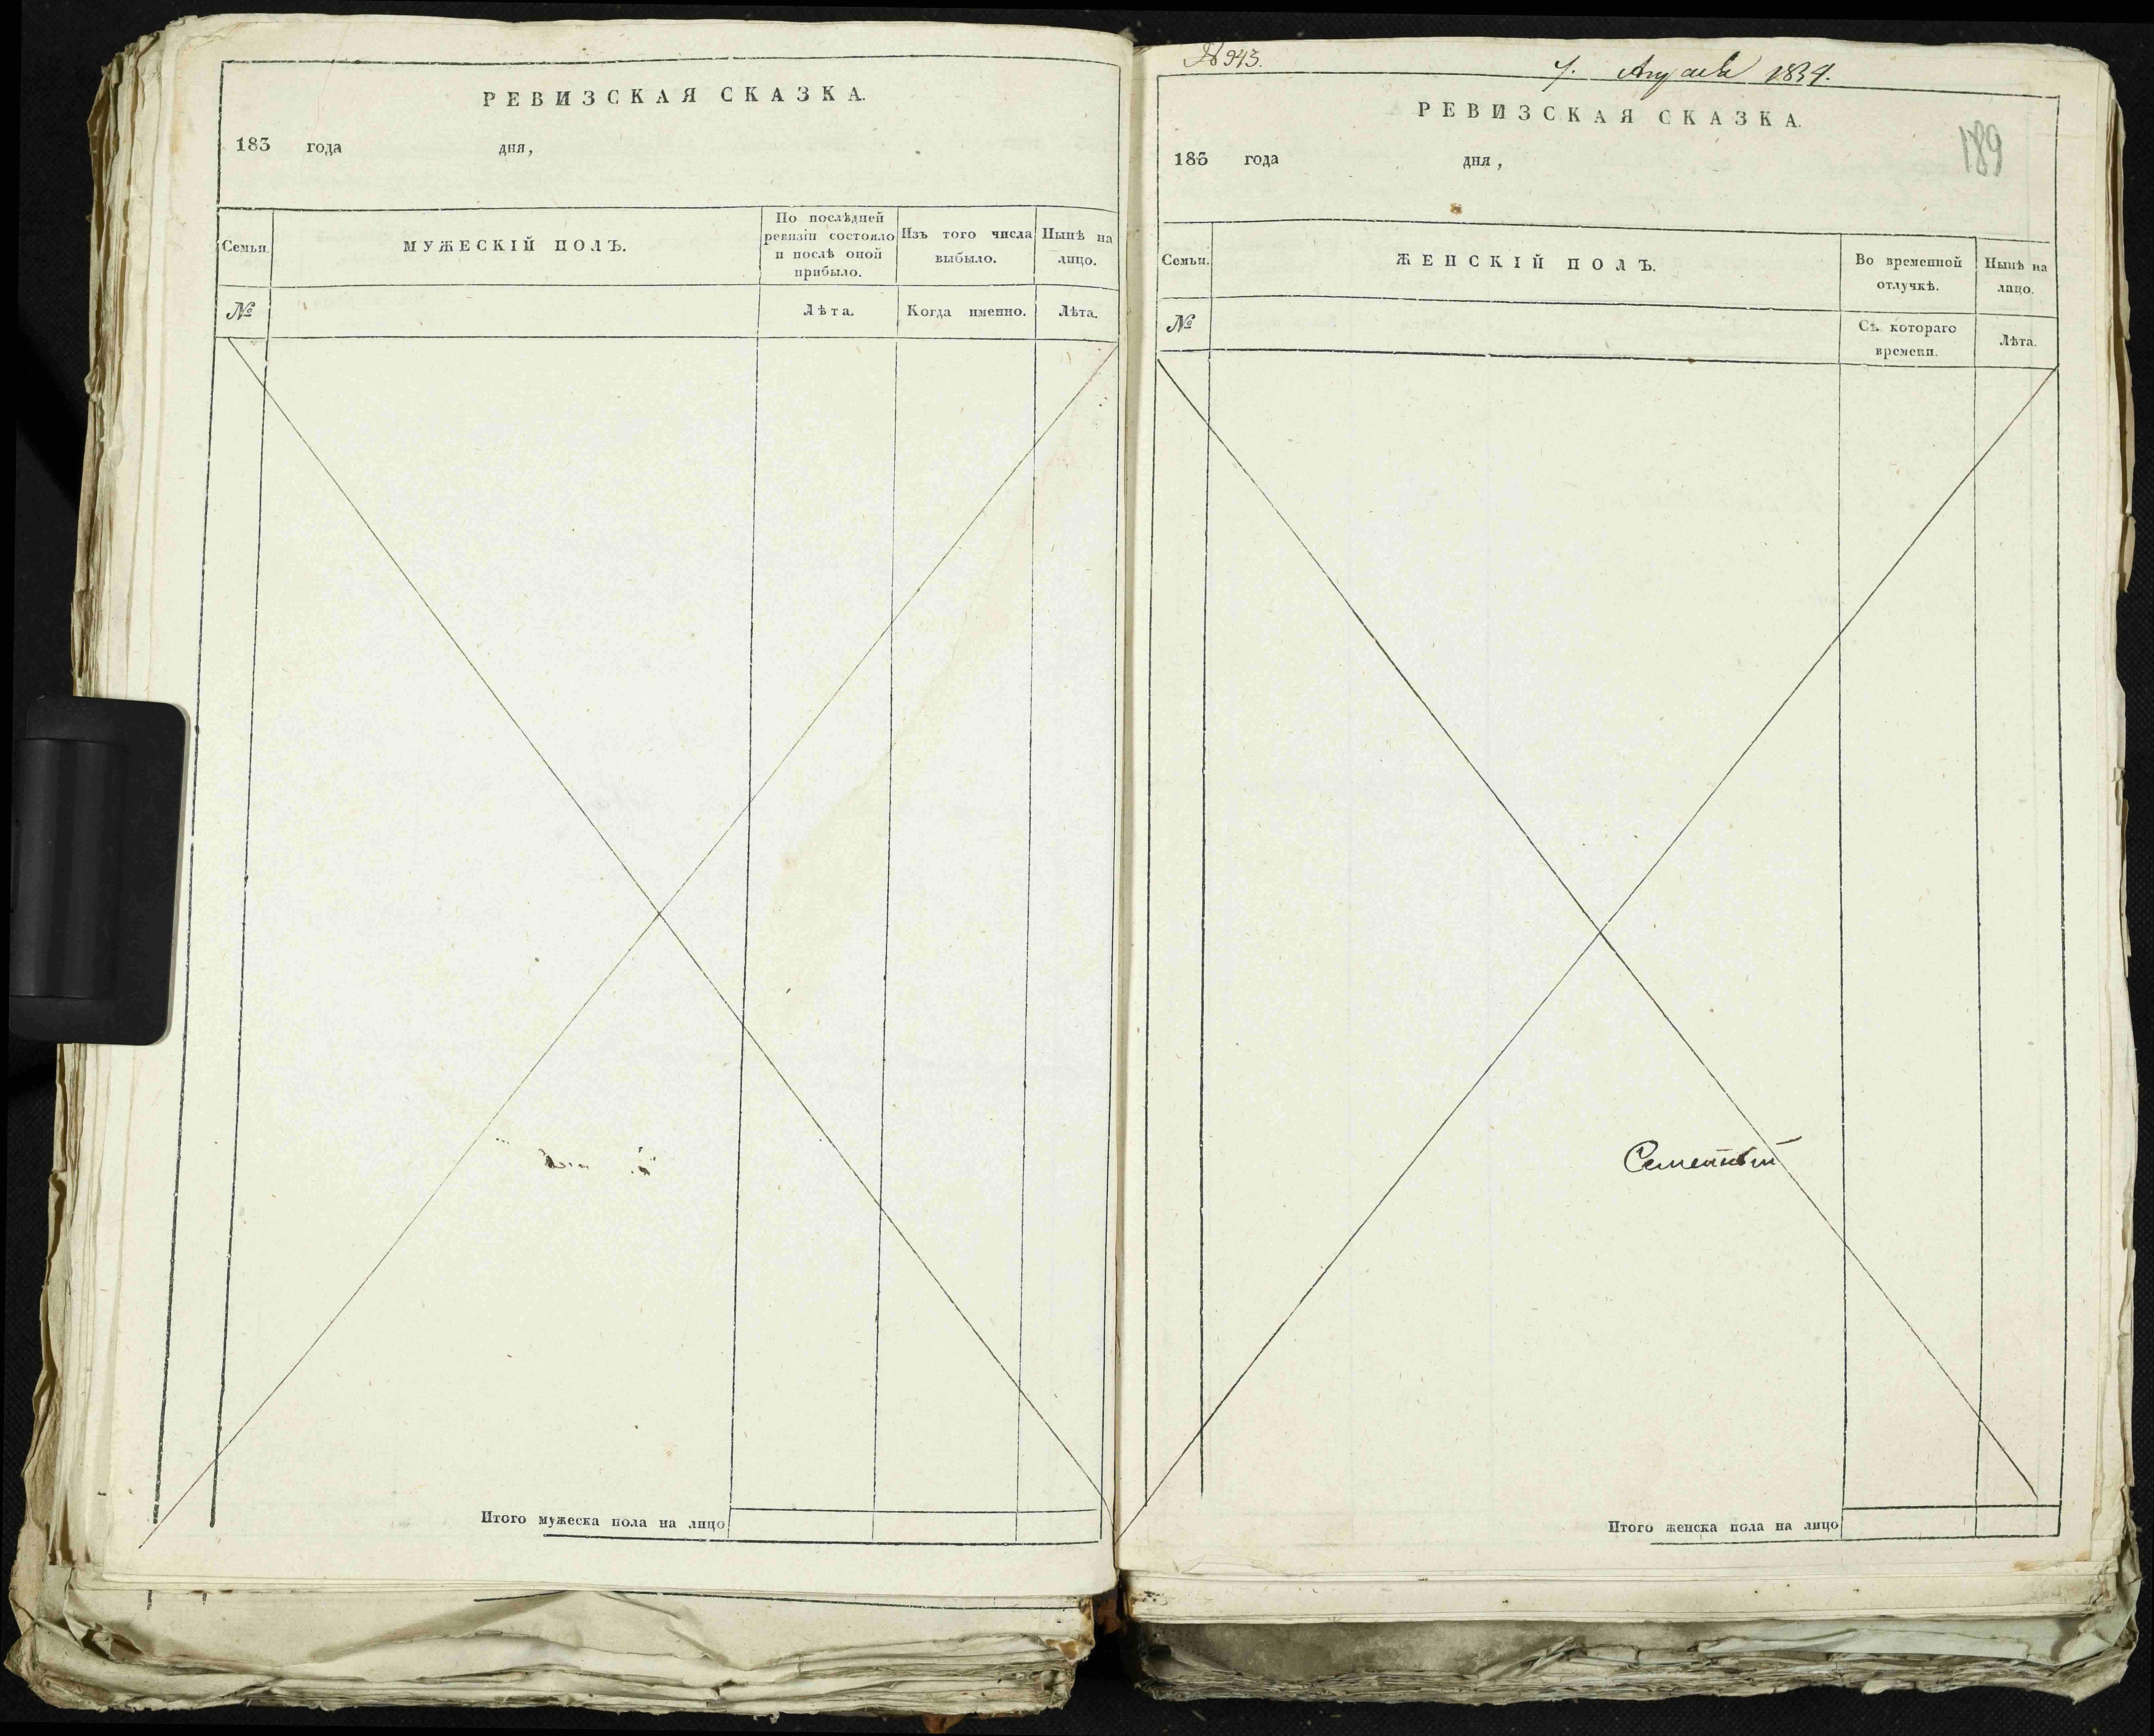 РЕВИЗСКАЯ СКАЗКА.
183 года дня,
Семьи. МУЖЕСКІЙ ПОЛЪ. По послѣдней ревизіи состояло и послѣ оной прибыло. Изъ того числа выбыло. Нынѣ на лицо.
№ Лѣта. Когда именно. Лѣта.
Итого мужеска пола на лицо
№ 943. 7. Августа 1834.
РЕВИЗСКАЯ СКАЗКА.
183 года дня,
189
Семьи. ЖЕНСКІЙ ПОЛЪ. Во временной отлучкѣ. Нынѣ на лицо.
№ Съ котораго времени. Лѣта.
Итого женска пола на лицо